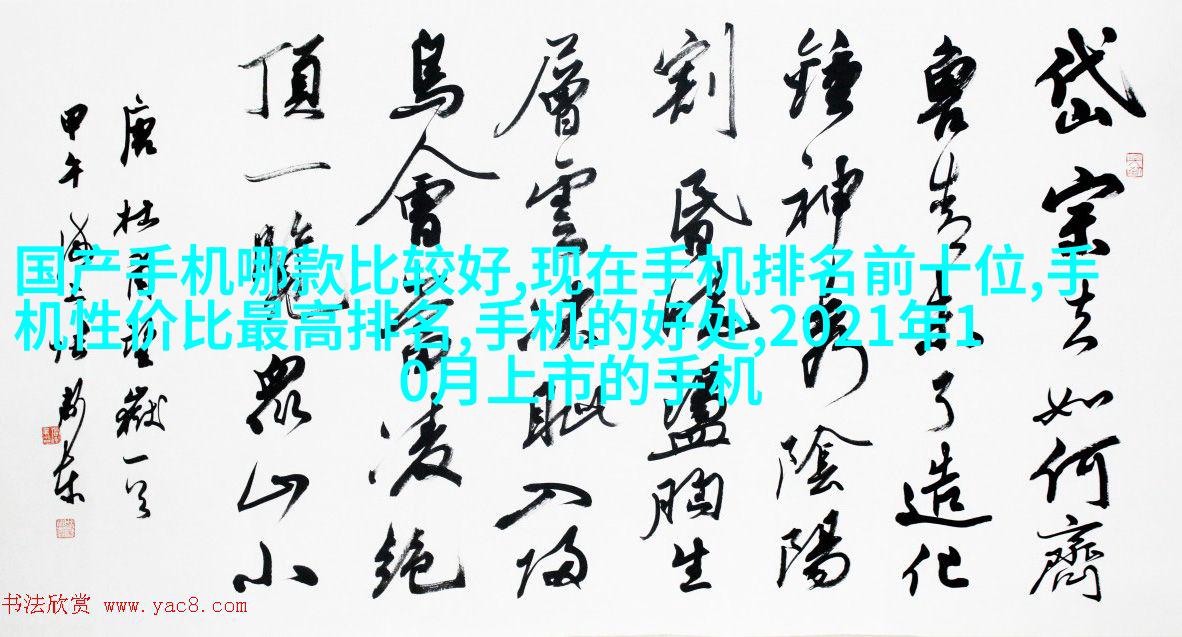 岱宗夫如何齊
魯青未了造化
鍾神秀陰陽
割昏曉盪胸生
層雲決眦入歸
鳥會當凌絕
頂一覽眾山小
唐杜甫望嶽一首
甲午
国产手机哪款比较好,现在手机排名前十位,手
机性价比最高排名,手机的好处,2021年1
0月上市的手机
书法欣赏 www.yac8.com